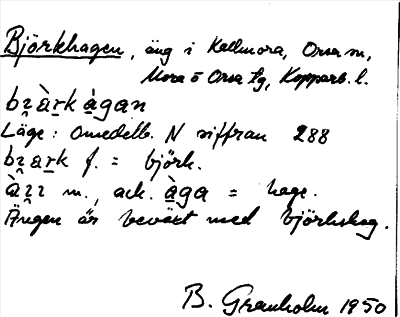 Björkhagen, äng i Kallmora, Orsa sn,
Mora o Orsa tg, Kopparb. l.
bɿàrk àgan
Läge: omedelb. N siffran 288
bɿark f. = björk.
m., ack. àga = hage.
Ängen är beväxt med björkskog.
B. Granholm 1950